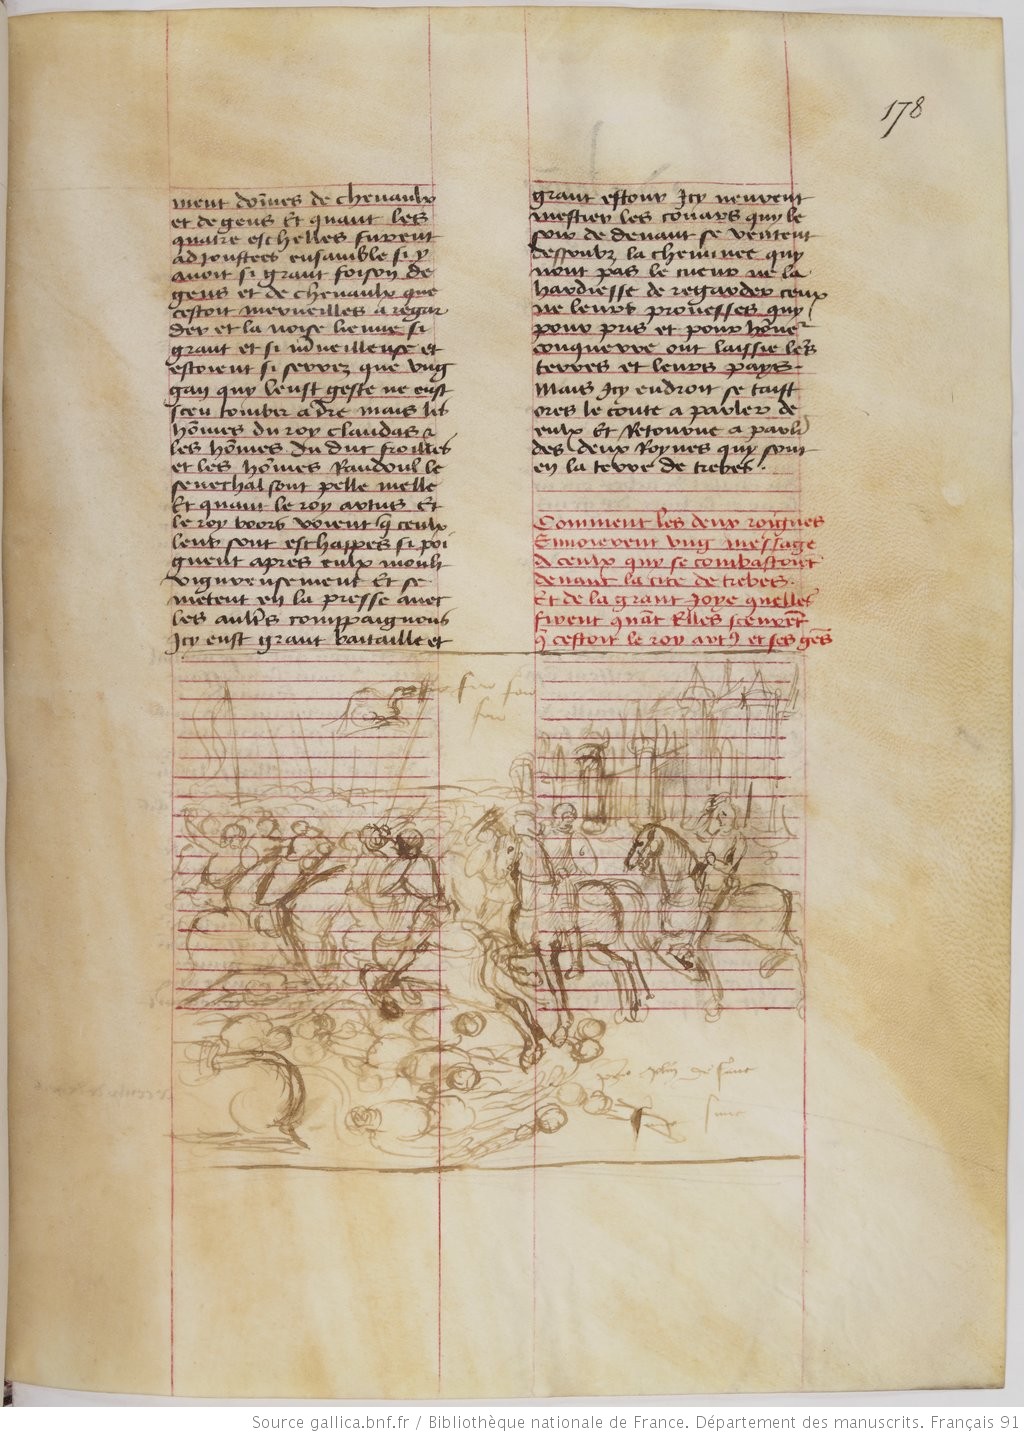 178
ment doīnes de chevaulx
et de gens Et quant les
quatre eschelles furent
adjoustees ensamble si y
avoit si grant foison de
gens et de chevaulx que
cestoit merveilles a regar
der et la noise lienne si
grant et si mveilleuse et
estoient si serrez que ung
gan quy leust geste ne eust
sceu tomber a dre mais les
hōmes du roy claudas &
les hōmes du duc frolles
et les hōmes Randoul le
senechal sont pelle melle
Et quant le roy artus Et
le roy boors voient q ceulx
leur sont eschappes si poi
gnent apres eulx moult
vigureusement Et se
metent en la presse avec
les aultrs compaignons
Icy eust grant bataille et
grant estour Icy neurent
mestier les couars quy le
soir de devant se ventent
dessoubz la cheminee quy
nont pas le cueur ne la
hardiesse de regarder ceux
ne leurs prouesses quy
pour pris et pour hōner
conquerre ont laissie leurs
terres et leurs pays.
Mais Icy endroit se taist
ores le conte a parler de
eulx Et Retourne a parlr
des deux Roynes quy sont
en la terre de trebes.
Comment les deux roignes
Envoierent ung message
A ceulx quy se combastoient
devant la cite de trebes.
Et de la grant Joye quelles
firent quāt Elles sceurēt
q cestoit le roy art9 et ses gēs
Source gallica.bnf.fr / Bibliothèque nationale de France. Département des manuscrits. Français 91